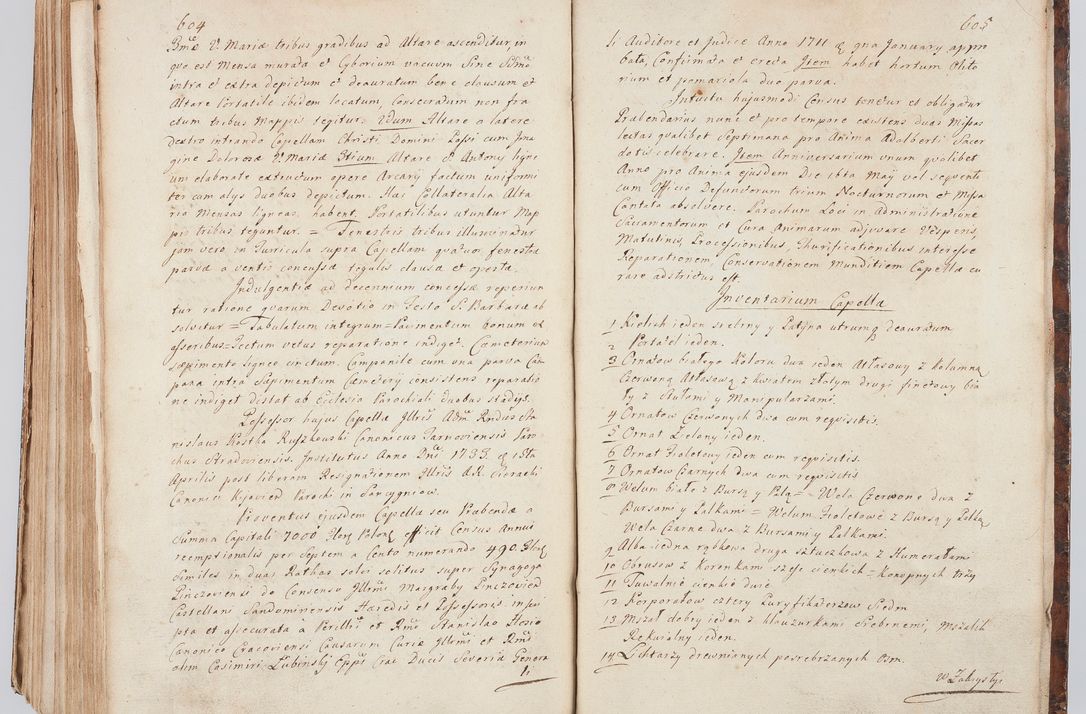 604
Bmæ V. Mariæ tribus gradibus ad Altare ascenditur, in
quo est Mensa murata et Cyborium vacuum Sine
intra et extra depictum et deauratum bene clausum et
Altare Portatile ibidem locatum, Consecratum non fra
ctum tribus Mappis tegitur. Altare a latere
dextro intrando Capellam Christi Domini Passi cum Ima
gine Dolorosæ V. Mariæ Altare S. Antony ligne
um elaborate extructum opere Arcary factum uniformi
ter cum alys duobus depictum. Hæc Collateralia Alta
ria Mensas ligneas, habent, Portatilibus utuntur Map
pis tribus teguntur. = Fenestris tribus illuminatur
jam vero in Turicula supra Capellam quatuor fenestræ
parvæ a ventis concussæ tegulis clausæ et opertæ.
Indulgentiæ ad decennium concessæ reperiun
tur ratione quarum Devotio in Festo S. Barbaræ ab
solvitur = Tabulatum integrum = Pavimentum bonum ex
asseribus = Tectum vetus reparatione indiget. Cæmeterium
sæpimento ligneo cinctum. Campanile cum una parva Cam
pana intra sæpimentum Cæmetery consistens reparatio
ne indiget distat ab Ecclesia Parochiali duobus stadys.
Possessor hujus Capellæ Illris Adm Rndus Sta
nislaus Kostka Ruszkowski Canonicus Tarnoviensis Paro
chus Stradoviensis. Institutus Anno Dni 1733
Aprilis post liberam Resignationem Illris A.R. Sieracki
Canonici Kijovien Parochi in
Proventus ejusdem Capellæ seu Præbendæ a
Summa Capitali 7000 Flor Polon efficit Census Annui
reemptionalis per Septem a Cento numerando 490. Floren
similes in duas Rathas solvi solitus super Synagoga
Pinczoviensi de Consensu Illrmi Margraby Pinczovien
Castellani Sandomiriensis Hæredis et Possessoris inscri
pta et assecurata a Perilli et Rmo Stanislao Hosio
Canonico Cracoviensi Causarum Curiæ Illrmi et Rmi
olim Casimiri Łubinski Eppi Crac Ducis Severiæ Genera
li
605
li Auditore et Judice Anno 1711 January appro
bata, Confirmata et erecta Item habet hortum Olito
rium et pomariola duo parva.
Intuitu hujusmodi Census tenetur et obligatur
Præbendarius nunc et pro tempore existens duas Missas
lectas qualibet Septimana pro Anima Adalberti Sacer
dotis celebrare. Item Anniversarium unum quolibet
Anno pro Anima ejusdem Die 16ta May vel sequenti
cum Officio Defunctorum trium Nocturnorum et Missa
Cantata absolvere. Parochum Loci in Administratione
Sacramentorum et Cura Animarum adjuvare Vesperis,
Matutinis, Processionibus, Thurificationibus interesse
Reparationem Conservationem Munditiem Capellæ cu
rare adstrictus est.
Inventarium Capellæ
1 Kielich ieden srebrny y Patyna utrumq deauratum
2 Portatel ieden.
3 Ornatow białego Koloru dwa ieden Atłasowy z Kolumną
Czerwoną Atłasową z Kwiatem złotym drugi białły
ły z Stułami y Manipularzami.
4 Ornatow Czerwonych dwa cum requisitis.
5 Ornat Zielony ieden.
6 Ornat Fioletowy ieden cum requisitis.
7 Ornatow Czarnych dwa cum requisitis
8 Welum białe z Bursą y Palką = Wela Czerwone dwa z
Bursami y Palkami = Welum Fioletowe z Bursą y Palką
Wela Czarne dwa z Bursami y Palkami.
9 Alba iedna rąbkowa druga sztuczkowa z Humerałami
10 Obrusow z Koronkami szesc cienkich = Konopnych trzy
11 Tuwalnie cienkie dwie
12 Korporałow cztery Puryfikaterzow Siedm
13 Mszał dobry ieden z klauzurkami Srebrnemi, Mszalik
Rekwialny ieden.
14 Lichtarzy drewnianych posrebrzanych Osm.
w Zakrystyi